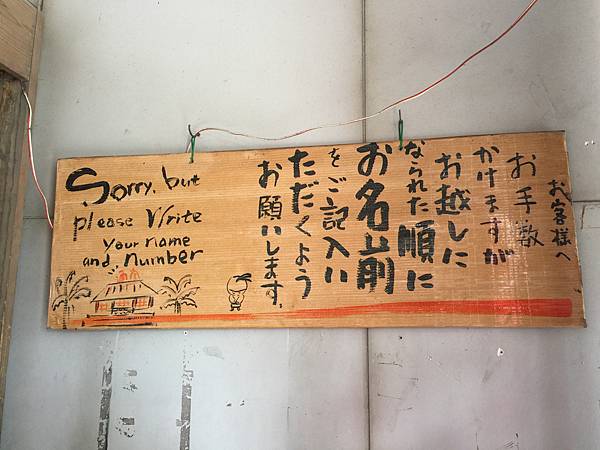 お客様へ
お手数
かけますが
お越しに
なられた順に
お名前
をご記入い
ただくよう
お願いします。
Sorry, but
please Write
your name
and, number